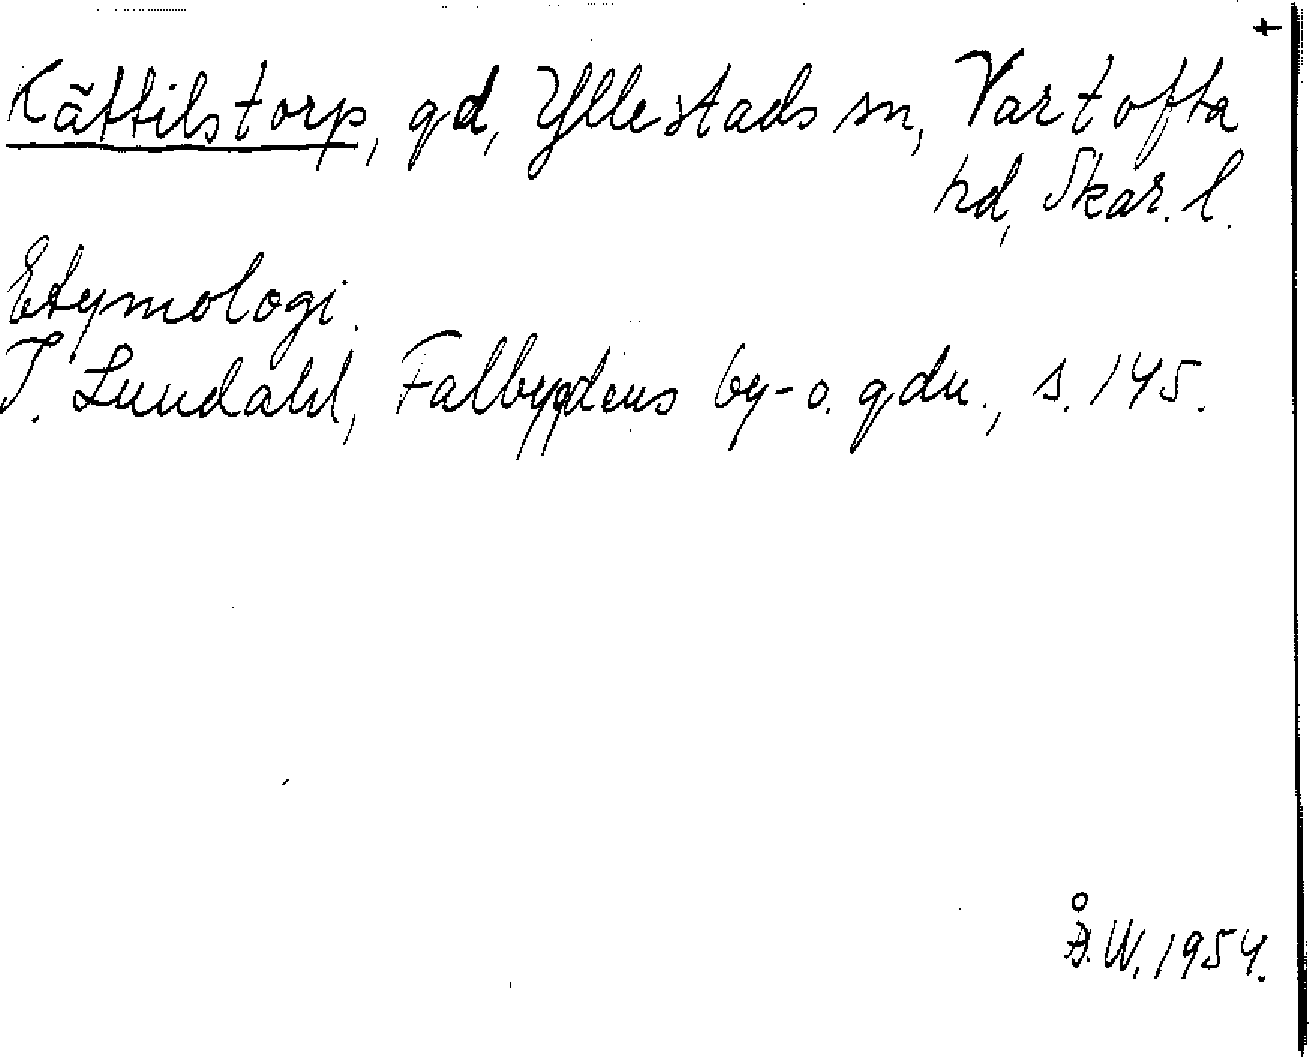 +
Kättilstorp, gd, Yllestads sn, Vartofta
hd, Skar. l.
Etymologi.
I. Lundahl, Falbygdens by- o. gdn., s. 145.
Å. W. 1954.